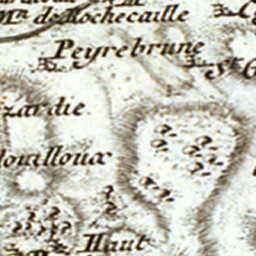 M.ⁿ de Rochecaille
Peyrebrune
zardie
douilloux
Haut